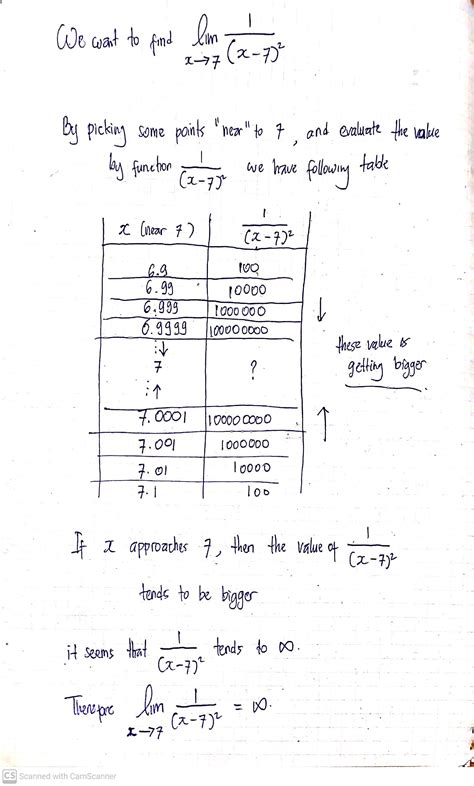 We want to find lim x→7 1/(x-7)²
By picking some points "near" to 7, and evaluate the value
by function 1/(x-7)² we have following table
x (near 7) 1/(x-7)²
6.9 100
6.99 10000
6.999 1000000
6.9999 100000000
⋮↓
7 ?
⋮↑
7.0001 100000000
7.001 1000000
7.01 10000
7.1 100
↓
these value is
getting bigger
↑
If x approaches 7, then the value of 1/(x-7)²
tends to be bigger
it seems that 1/(x-7)² tends to ∞.
Therefore lim x→7 1/(x-7)² = ∞.
CS Scanned with CamScanner